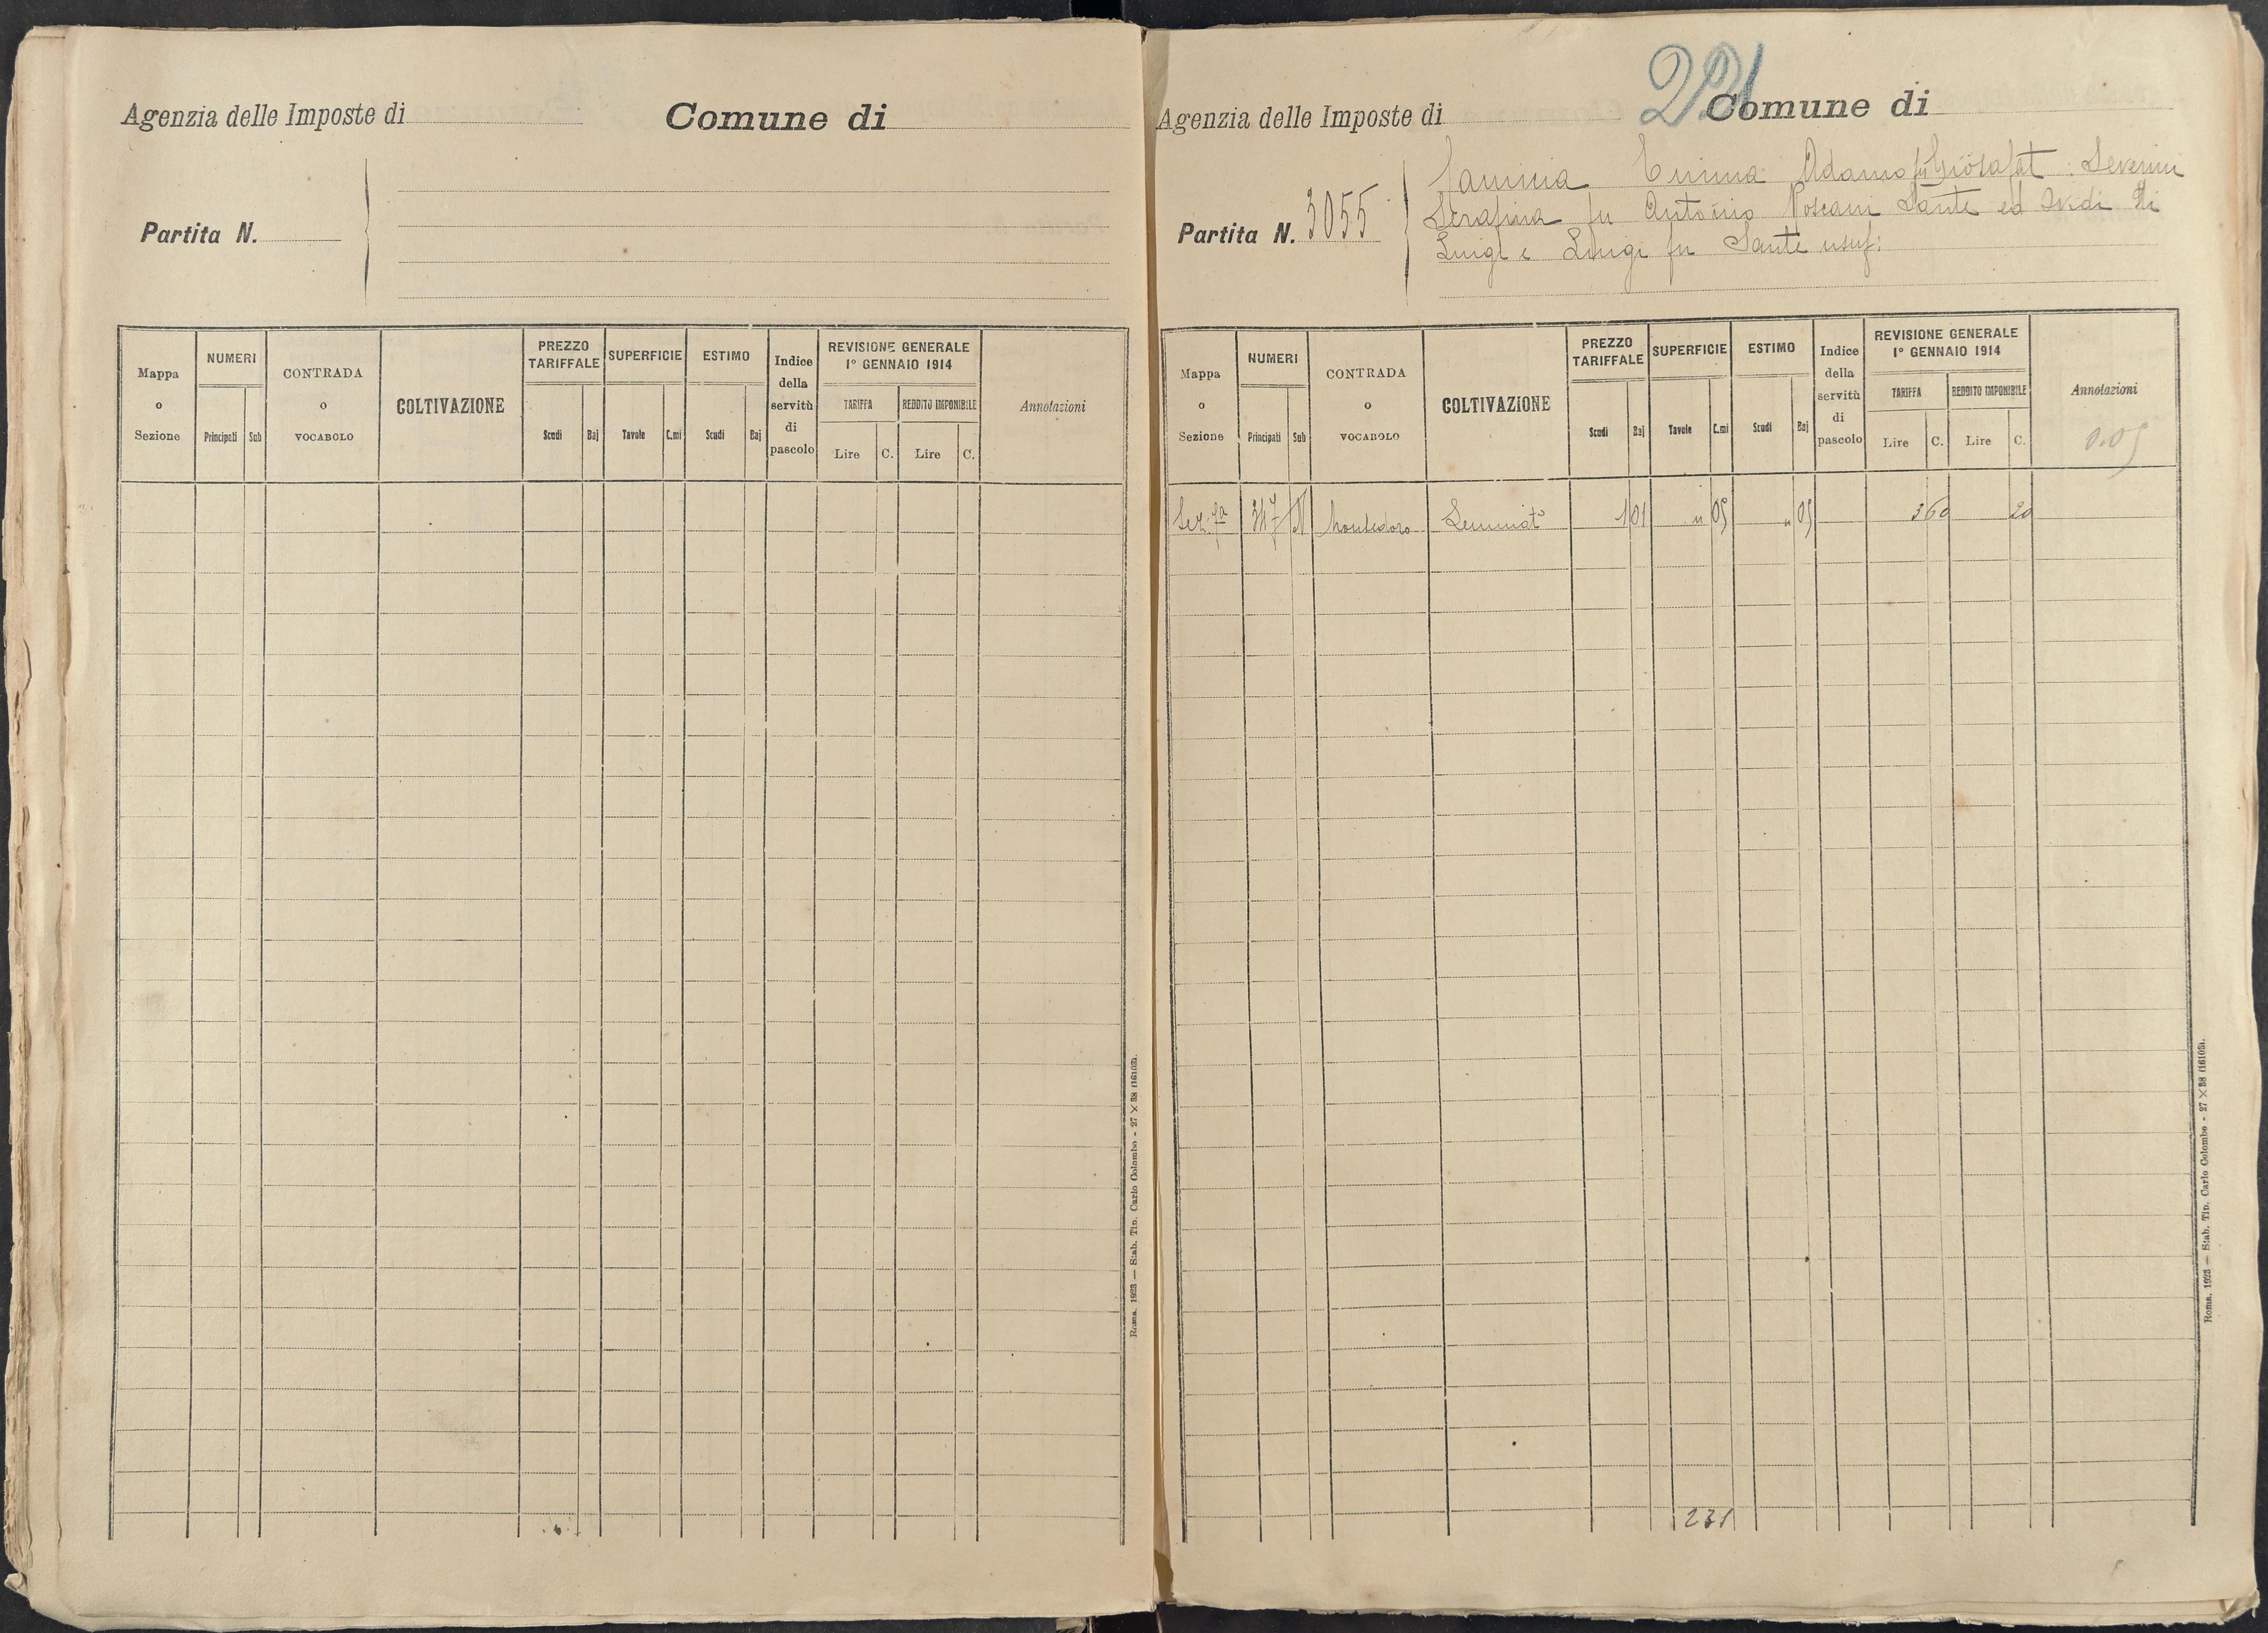 Agenzia delle Imposte di
Comune di
Partita N.
Mappa o Sezione
NUMERI
Principali
Sub
CONTRADA o VOCABOLO
COLTIVAZIONE
PREZZO TARIFFALE
Scudi
Baj
SUPERFICIE
Tavole
C.mi
ESTIMO
Scudi
Baj
Indice della servitù di pascolo
REVISIONE GENERALE
1° GENNAIO 1914
TARIFFA
REDDITO IMPONIBILE
Lire
C.
Lire
C.
Annotazioni
Roma, 1923 — Stab. Tip. Carlo Colombo - 27 × 38 (16103).
Agenzia delle Imposte di
Comune di
Partita N. 3055
Adamo fu Giosafat Severini
Serafina fu Antonio Sante ed di
Luigi e Luigi fu Sante usuf:
Mappa o Sezione
NUMERI
Principali
Sub
CONTRADA o VOCABOLO
COLTIVAZIONE
PREZZO TARIFFALE
Scudi
Baj
SUPERFICIE
Tavole
C.mi
ESTIMO
Scudi
Baj
Indice della servitù di pascolo
REVISIONE GENERALE
1° GENNAIO 1914
TARIFFA
REDDITO IMPONIBILE
Lire
C.
Lire
C.
Annotazioni
0.05
Sez. 1a Montedoro Seminat° 1 01 " 05 " 05 3 60 20
231
Roma, 1923 — Stab. Tip. Carlo Colombo - 27 × 38 (16103).